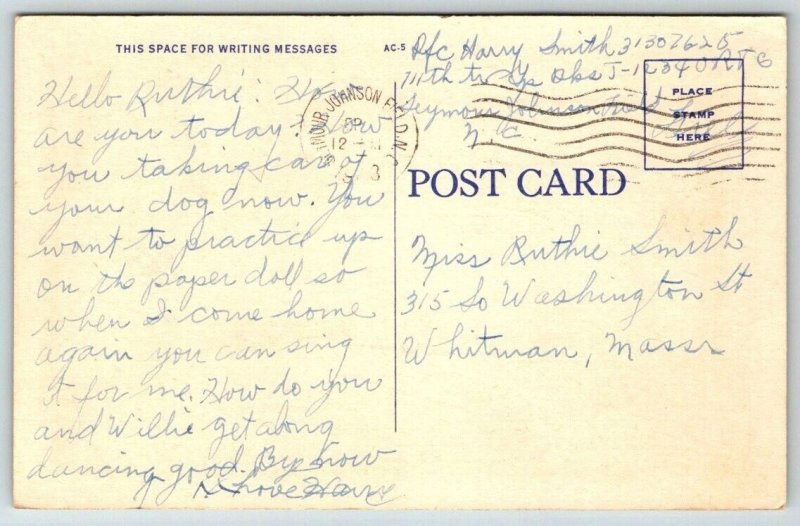 THIS SPACE FOR WRITING MESSAGES
AC-5
Hello Ruthie: How
are you today. How
you taking car of
your dog now. You
want to practic up
on the paper doll so
when I come home
again you can sing
it for me. How do you
and Willie get along
dancing good. By now
Love Harry
Pfc Harry Smith 31307625
Seymour Johnson Field
N. C
SEYMOUR JOHNSON FIELD, N.C.
12
PLACE
STAMP
HERE
POST CARD
Miss Ruthie Smith
315 So Washington St
Whitman, Massr